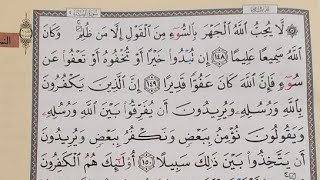 لَّا يُحِبُّ اللَّهُ الْجَهْرَ بِالسُّوءِ مِنَ الْقَوْلِ إِلَّا مَن ظُلِمَ ۚ وَكَانَ
اللَّهُ سَمِيعًا عَلِيمًا ١٤٨ إِن تُبْدُوا خَيْرًا أَوْ تُخْفُوهُ أَوْ تَعْفُوا عَن
سُوءٍ فَإِنَّ اللَّهَ كَانَ عَفُوًّا قَدِيرًا ١٤٩ إِنَّ الَّذِينَ يَكْفُرُونَ
بِاللَّهِ وَرُسُلِهِ وَيُرِيدُونَ أَن يُفَرِّقُوا بَيْنَ اللَّهِ وَرُسُلِهِ
وَيَقُولُونَ نُؤْمِنُ بِبَعْضٍ وَنَكْفُرُ بِبَعْضٍ وَيُرِيدُونَ
أَن يَتَّخِذُوا بَيْنَ ذَٰلِكَ سَبِيلًا ١٥٠ أُولَٰئِكَ هُمُ الْكَافِرُونَ